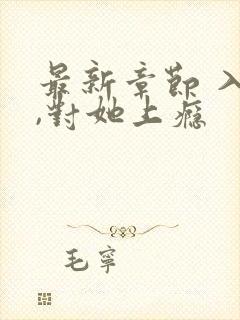 最新章節 入
,對她上癮
毛寧